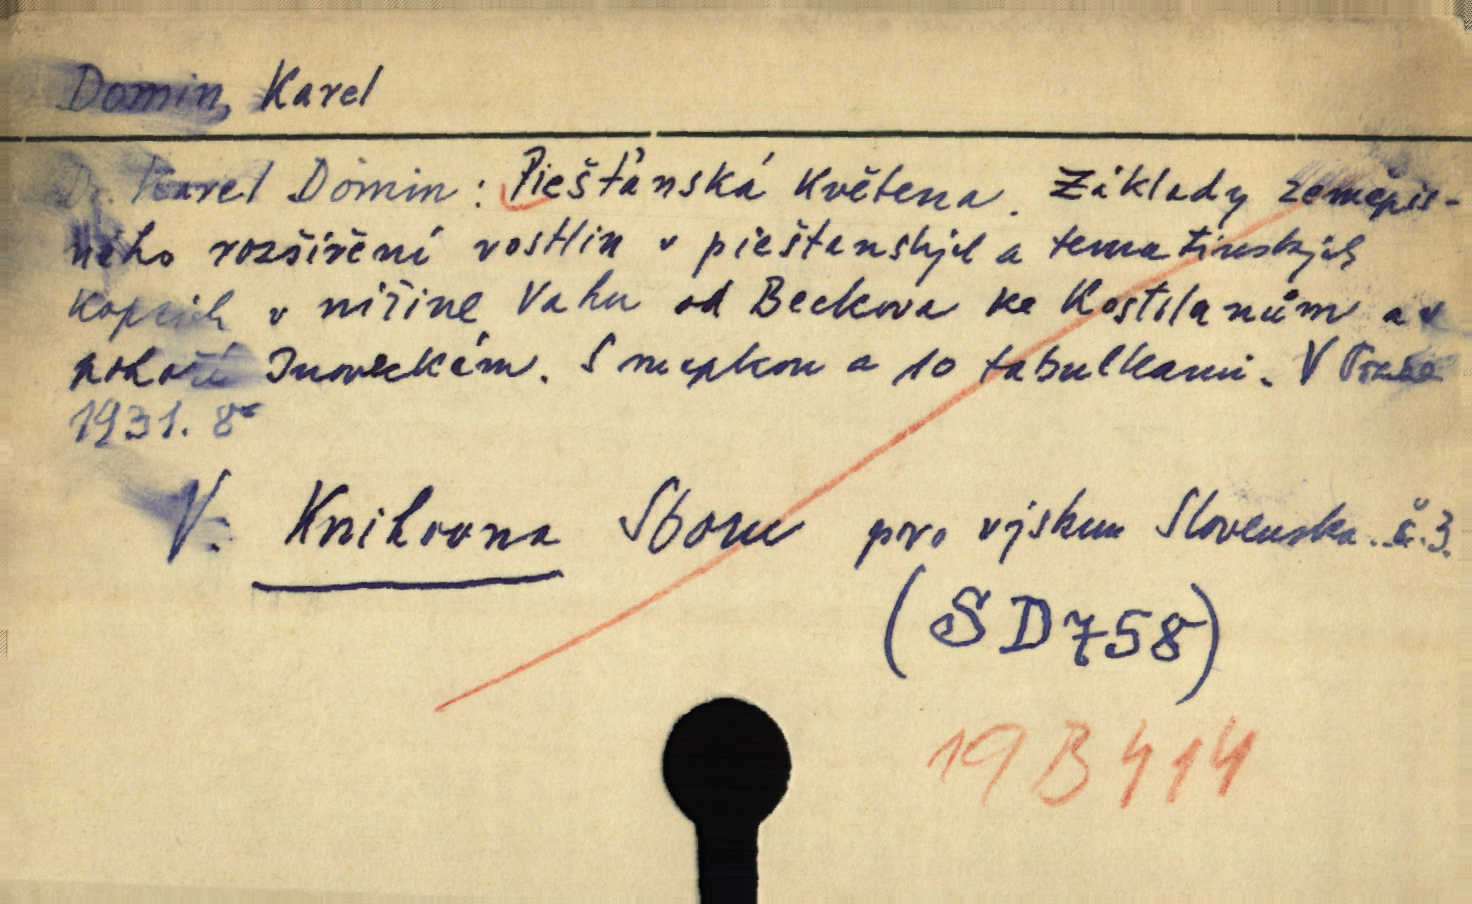 Domin, Karel
Dr. Karel Domin: Piešťanská Květena. Základy zeměpis-
ného rozšíření rostlin v pieštanských a tematínských
kopcích v nížině Váhu od Beckova ke Kostolanům a v
pohoří Inoveckém. S mapkou a 10 tabulkami. V Praze
1931. 8°
V. Knihovna Sboru pro výskum Slovenska. č. 3.
(SD758)
19 B 414